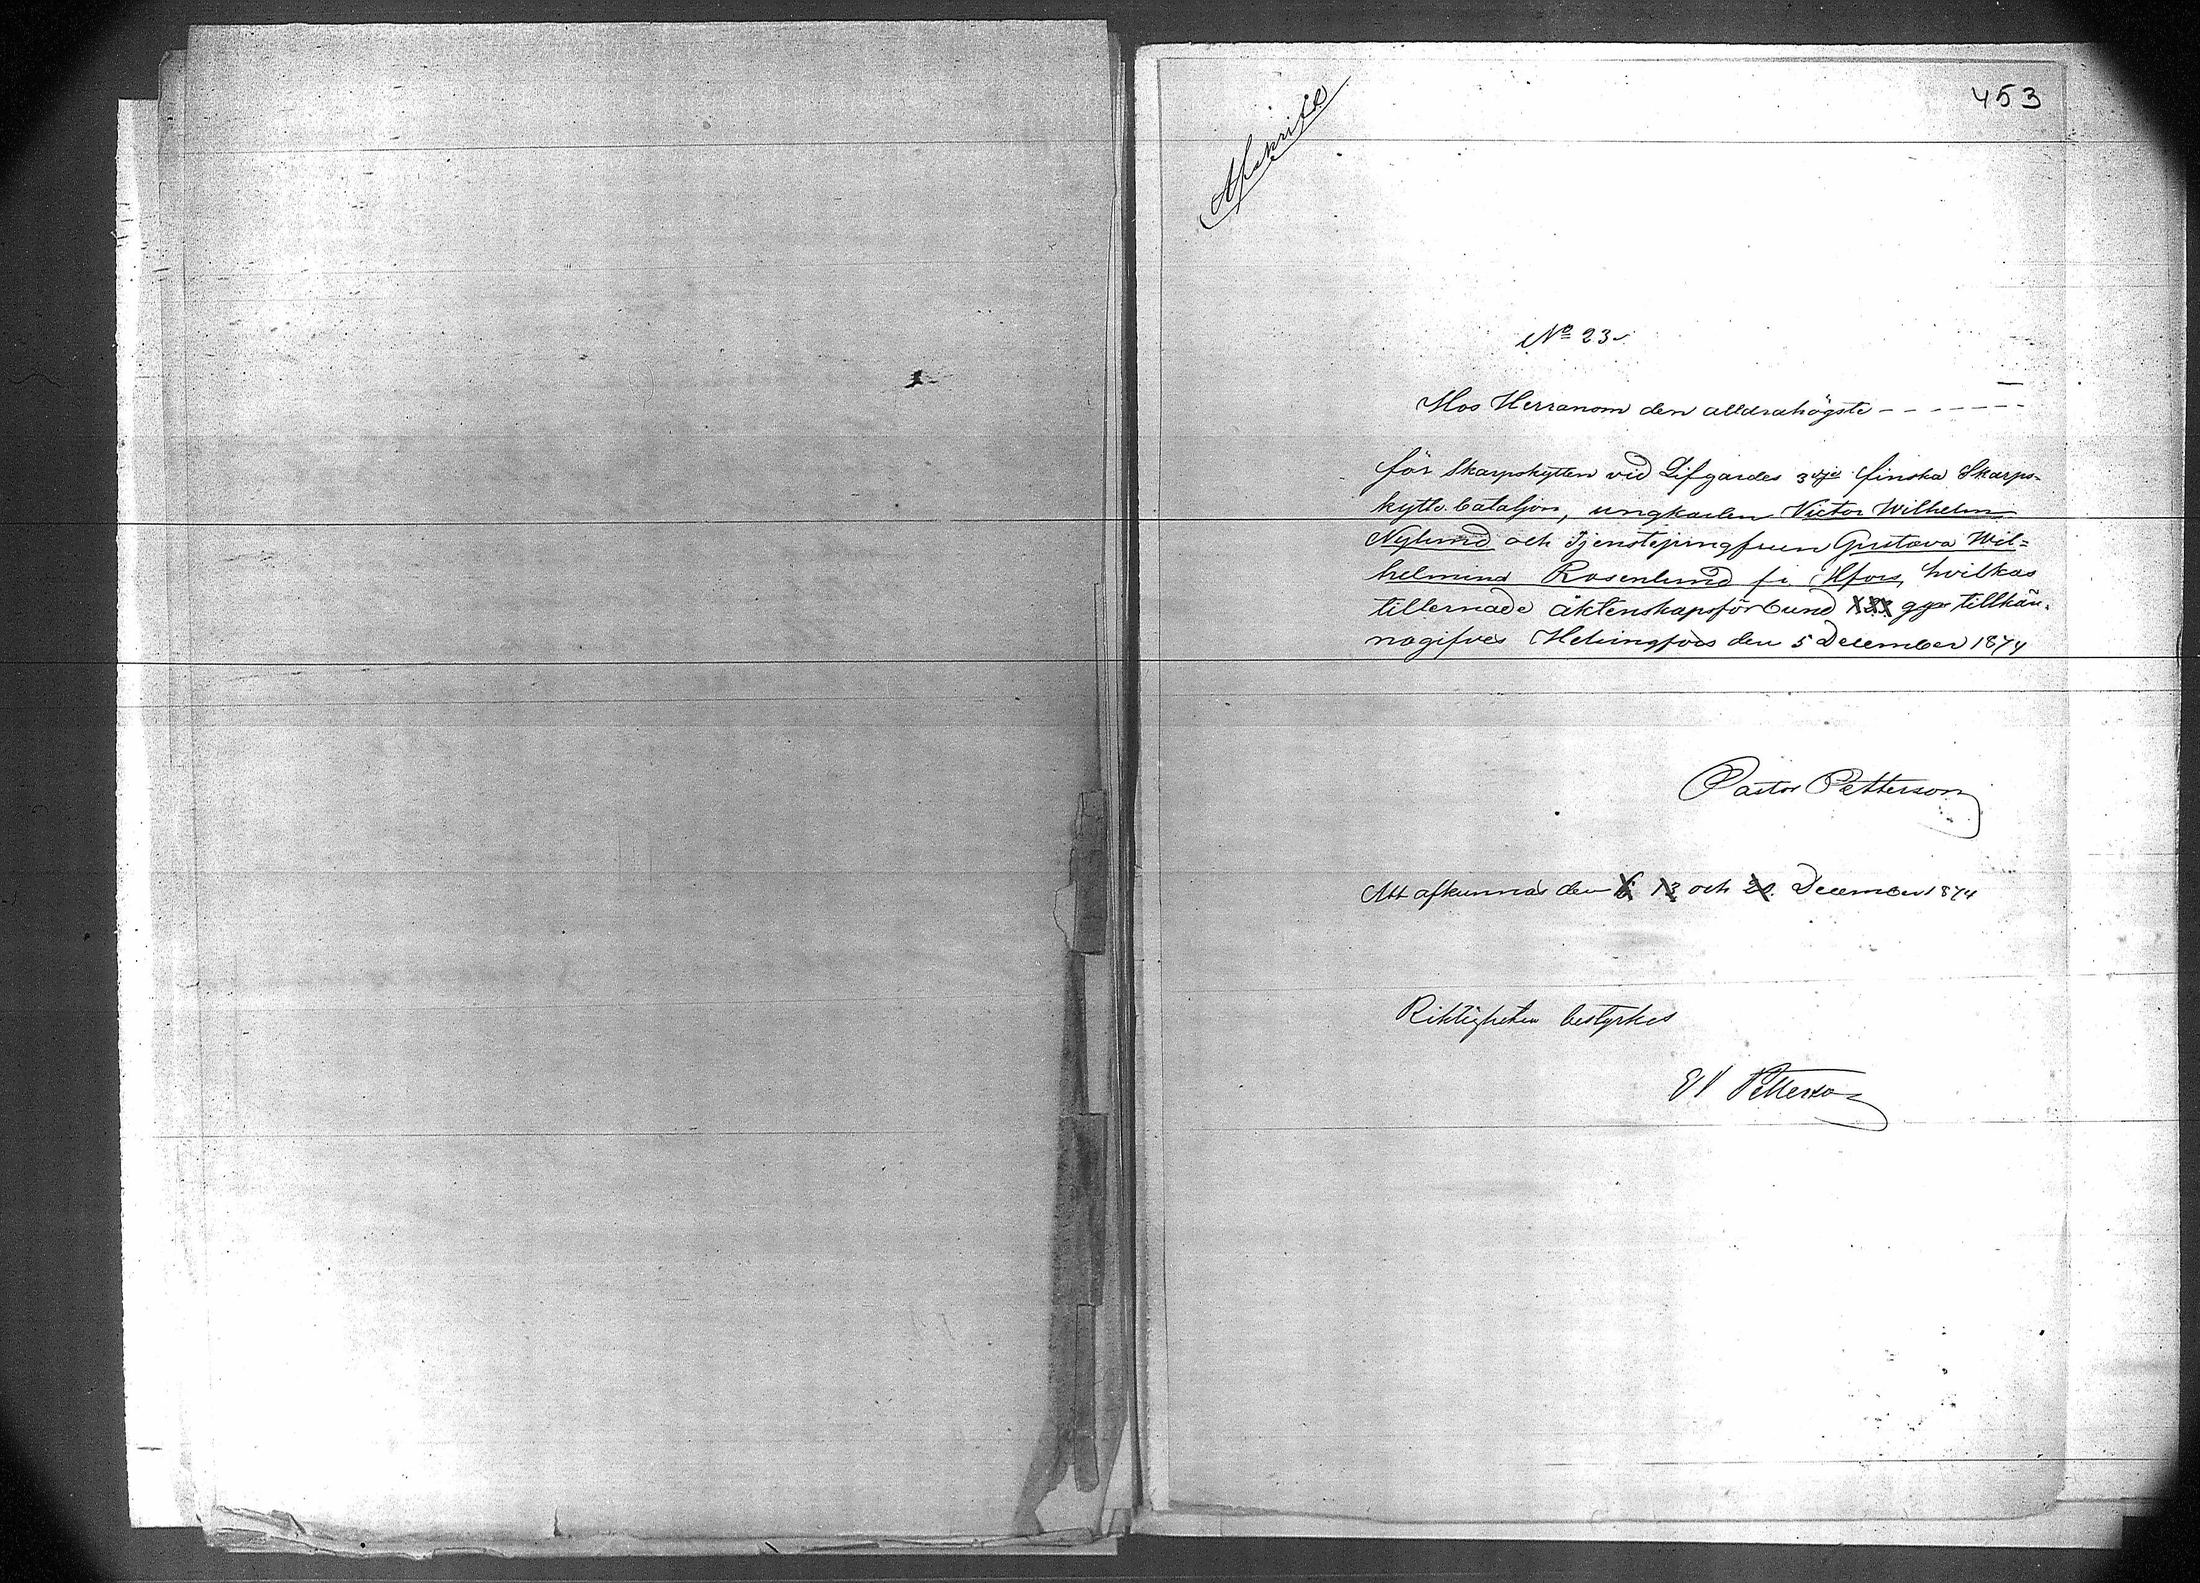 453
Afskrift
No 23.
Hos Herranom den alldrahögste - - - - - - -
för Skarpskytten vid Lifgardes 3dje finska Skarps-
kytte bataljon, ungkarlen Victor Wilhelm
Nylund och Tjenstejungfrun Gustava Wil=
helmina Rosenlund fr. Hfors, hvilkas
tillernade äktenskapsförbund XXX ggr tillkän-
nagifves Helsingfors den 5 December 1874
Pastor Petterson
Att afkunnas den 6 13 och 20. December 1874
Riktigheten bestyrkes
Petterson